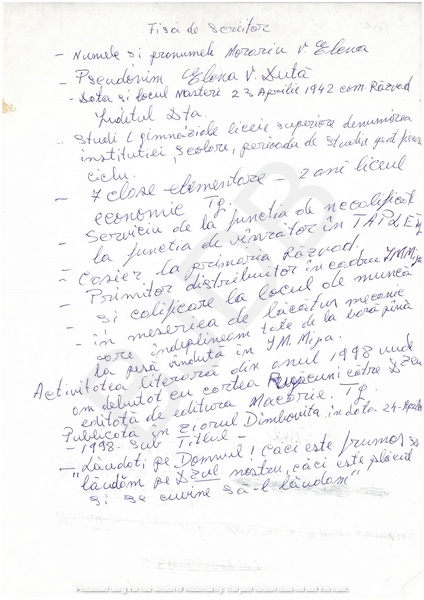 Fișă de scriitor
- Numele si pronumele Morariu V Elena
- Pseudonim Elena V. Dută
- Data și locul Nasterii 23 Aprilie 1942 com. Răzvad
Judetul Dta.
- Studii (gimnaziale liceu, superioare denumirea
instituției, școlare, perioadu de studiu pet
ciclu.
- 7 clase elementare - 2 ani liceul
economic Tg.
- Serviciu de la functia de necalificat
la functia de vînzător în TAPLE
- Casier la primăria Răzvad.
- Primitor distribuitor în cadru IMMija
și calificare la locul de muncă
- în meseria de lăcătuș mecanic
care îndeplineam tote de la vară pînă
la pusă vîndută în IM. Mija.
Activitatea literară din anul 1998 und
am debutat cu cartea Rugăciuni către Dzeu
editată de editura Macarie. Tg.
Publicată în Ziarul Dîmbovita în data 24 Aprilie
- 1998. Sub Titlul -
- "Lăudați pe Domnul! Căci este frumos să
lăudăm pe Dzul nostru, căci este plăcut
și se cuvine să-l lăudăm"
BEBB